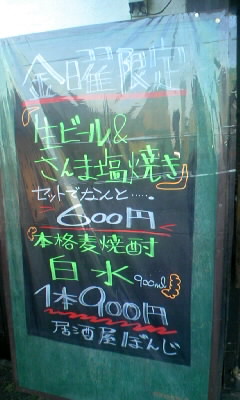 金曜限定
生ビール&
さんま塩焼き
セットでなんと・・・・。
600円
本格麦焼酎
白水 900ml
1本900円
居酒屋ぼんじ